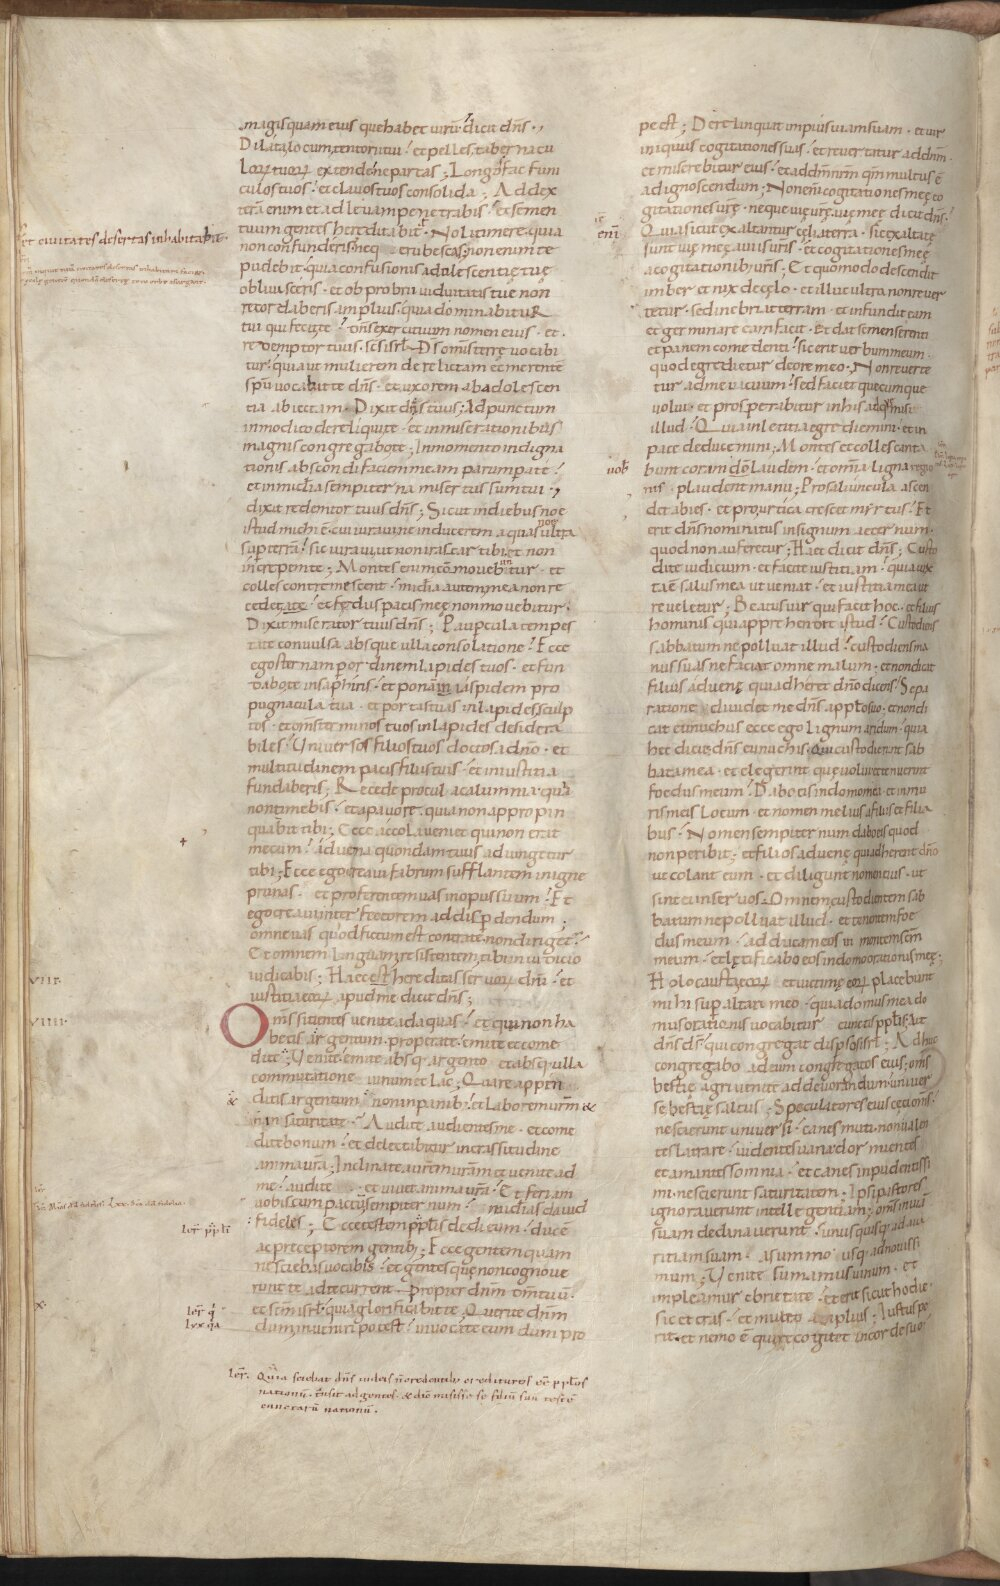 magis quam eius que habet uirū dicit dn̄s·,
Dilata locum tentorii tui · et pelles tabernacu
lorum tuorum extende ne parcas ; Longos fac funi
culos tuos · et clauos tuos consolida ; Ad dex
terā enim et ad leuam penetrabis · et semen
tuum gentes hereditabit · Noli timere quia
et ciuitates desertas inhabitabit·
non confunderis neq erubesces non enim te
pudebit quia confusionis adolescentię tuę
obliuisceris · et obprobrii uiduitatis tuę non
recordaberis amplius quia dominabitur
tui qui fecit te · dn̄s exercituum nomen eius · et
redemptor tuus · sc̄s isrl Ds omīs terrę uocabi
tur quia ut mulierem derelictam et merente
spū uocabit te dn̄s · et uxorem ab adolescen
tia abiectam · Dixit dn̄s tuus ; Ad punctum
in modico dereliqui te · et in miserationibus
magnis congregabo te ; In momento indigna
tionis abscondi faciem meam parumper a te
et in mīa sempiterna misertus sum tui ·,
dixit redemtor tuus dn̄s ; Sicut in diebus noe
istud michi ē cui iuraui ne inducerem aquas noe ultra
super terrā sic iuraui ut non irascar tibi et non
increpem te ; Montes enim cōmouebuntur · et
colles contremescent · mīa autem mea non re
cedet a te · et fędus pacis meę non mouebitur ·
Dixit miserator tuus dn̄s ; Paupercula tempes
tate conuulsa absque ulla consolatione · Ecce
ego sternam per ordinem lapides tuos · et fun
dabo te in saphiris · et ponam iaspidem pro
pugnacula tua · et portas tuas in lapides sculp
tos · et om̄s terminos tuos in lapides desidera
biles · Uniuersos filios tuos doctos a dn̄o · et
multitudinem pacis filiis tuis · et in iustitia
fundaberis ; Recede procul a calumnia quia
non timebis · et a pauore quia non appropin
quabit tibi ; Ecce accola ueniet qui non erat
mecum · aduena quondam tuus adiungetur
tibi ; Ecce ego creaui fabrum sufflantem in igne
prunas · et proferentem uas in opus suum · Et
ego creaui interfectorem ad disperdendum ;
omne uas quod fictum est contra te non dirigetur
Et omnem linguam resistentem tibi in iudicio
iudicabis ; Haec est hereditas seruorum dn̄i · et
VIII·
iustitia eorum apud me dicit dn̄s ;
VIIII·
Om̄s sitientes uenite ad aquas · et qui non ha
betis argentum · properate emite et come
dite ; Uenite emite absq argento et absq ulla
commutatione uinum et lac ; Quare appen
ditis argentum non in panibus et laborem urm̄
non in saturitate · Audite audientes me · et come
dite bonum et delectabitur in crassitudine
anima ura ; Inclinate aurem uram et uenite ad
me audite et uiuet anima ura · Et feriam
uobiscum pactum sempiternum mīas dauid
fideles ; Ecce testem pplis dedi eum · ducē
ac preceptorem gentibus ; Ecce gentem quam
nesciebas uocabis · et gentes quę non cognoue
runt te ad te current propter dn̄m dm̄ tuū
et scm̄ isrl quia glorificabit te · Querite dn̄m
X·
dum inueniri potest · inuocate eum dum pro
Ier̄· Quia sciebat dn̄s iudeis n̄ credentib; credituros ee pplos
nationū. transit ad gentes. & dic misisse se filiū suū testē
cunctarū nationū.
pe est ; Derelinquat impius uiam suam · et uir
iniquus cogitationes suas · et reuertatur ad dn̄m
et miserebitur eius · et ad dm̄ nrm̄ qm̄ multus ē
ad ignoscendum ; Non enī cogitationes meę co
gitationes urę · neque uię urę uię meę dicit dn̄s ·
Quia sicut exaltantur cęli a terra · sic exaltatę
sunt uię meę a uiis uris · et cogitationes meę
a cogitationibus uris ; Et quomodo descendit
imber et nix de cęlo · et illuc ultra non reuer
tetur · sed inebriat terram · et infundit eam
et germinare eam facit · Et dat semen serenti
et panem comedenti · sic erit uerbum meum ·
quod egredietur de ore meo · Non reuerte
tur ad me uacuum · sed faciet quęcumque
uolui · et prosperabitur in his ad quę misi
illud · Quia in letitia egrediemini · et in
pace deducemini ; Montes et colles canta
uob
bunt coram dō laudem · et omnia ligna regio
nis · plaudent manu ; Pro saliuncula ascen
det abies · et pro urtica crescet mirtus · Et
erit dn̄s nominatus in signum aeternum ·
quod non auferetur ; Haec dicit dn̄s ; Custo
dite iudicium · et facite iustitiam · quia iux
ta ē salus mea ut ueniat · et iustitia mea ut
reueletur ; Beatus uir qui facit hoc · et filius
hominis qui apprehendet istud · Custodiens
sabbatum ne polluat illud · custodiens ma
nus suas ne faciat omne malum · et non dicat
filius aduenę qui adheret dn̄o dicens · Sepa
ratione diuidet me dn̄s a pplo suo · et non di
cat eunuchus ecce ego lignum aridum · quia
hec dicit dn̄s eunuchis · Qui custodierint sab
bata mea · et elegerint quę uolui et tenuerint
foedus meum · Dabo eis in domo mea et in mu
ris meis locum · et nomen melius a filiis et filia
bus · Nomen sempiternum dabo eis quod
non peribit · et filios aduenę qui adherent dn̄o
ut colant eum · et diligunt nomen eius · ut
sint ei in seruos · Omnem custodientem sab
batum ne polluat illud · et tenentem foe
dus meum · adducam eos in montem scm̄
meum · et lętificabo eos in domo orationis meę ;
Holocausta eorum et uictimę eorum placebunt
mihi super altari meo · quia domus mea do
mus orationis uocabitur cunctis pplis ; Ait
dn̄s ds̄ qui congregat dispersos isrl ; Adhuc
congregabo ad eum congregatos eius ; om̄s
bestię agri uenite ad deuorandum uniuer
sę bestię saltus ; Speculatores eius cęci om̄s ·
nescierunt uniuersi · canes muti non ualen
tes latrare · uidentes uana dormientes
et amantes somnia · et canes inpudentissi
mi nescierunt saturitatem ; Ipsi pastores
ignorauerunt intellegentiam ; om̄s in uiā
suam declinauerunt · unusquisq ad aua
ritiam suam · a summo usq ad nouissi
mum ; Uenite sumamus uinum · et
impleamur ebrietate · et erit sicut hodie
sic et cras · et multo amplius ; Iustus pe
rit · et nemo ē qui recogitet in corde suo